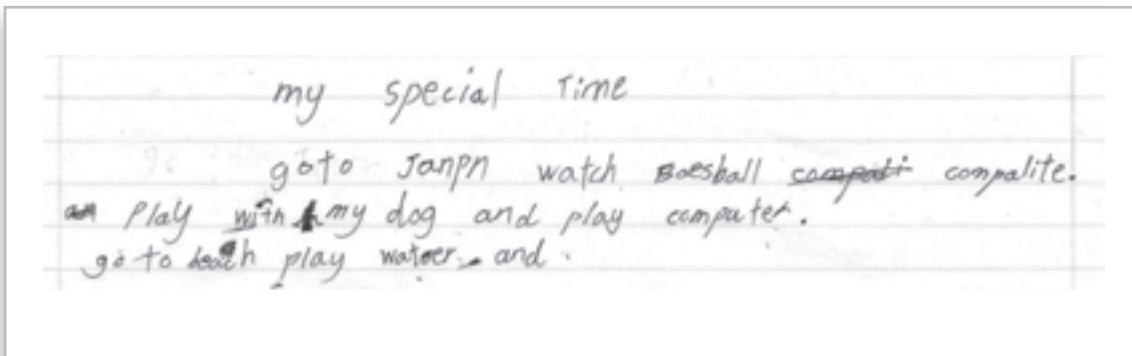 my special Time
goto Janpn watch Boesball compati compalite.
an Play with my dog and play computer.
go to beach play wateer and